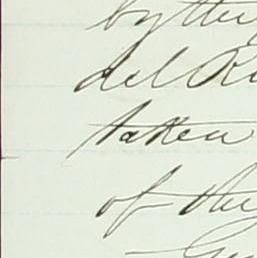 by the
del Ri
taken
of the